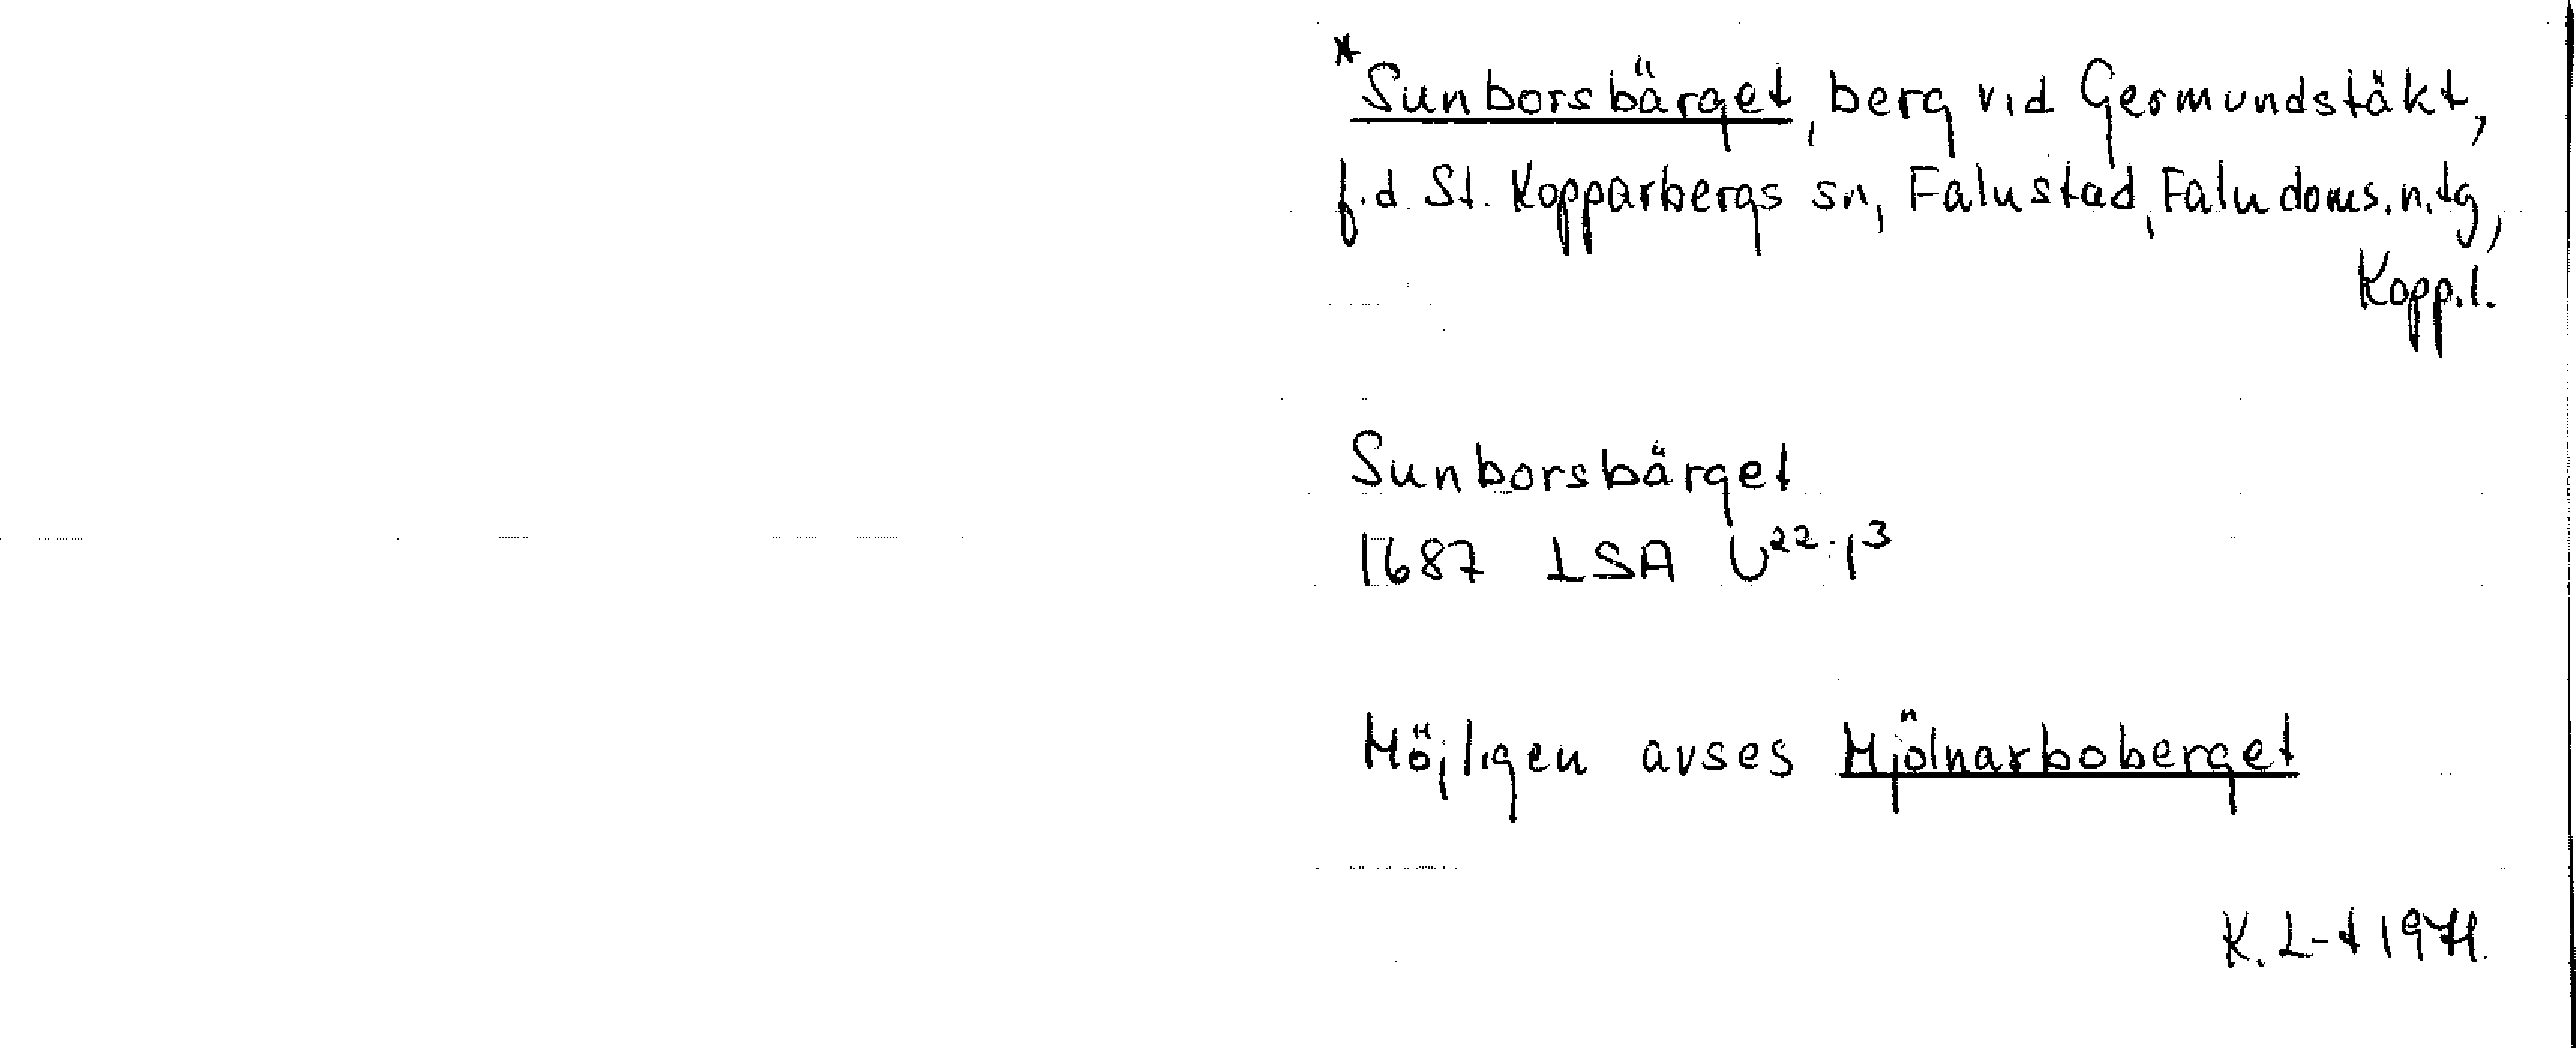 *Sunborsbärget, berg vid Germundstäkt,
f.d. St. Kopparbergs sn, Falu stad, Falu doms.n.tg,
Kopp.l.
Sunborsbärget
1687 LSA U22:13
Möjligen avses Mjölnarboberget
K.L-t 1971.